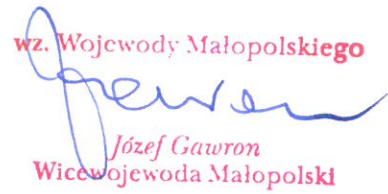 wz. Wojewody Małopolskiego
Józef Gawron
Wicewojewoda Małopolski